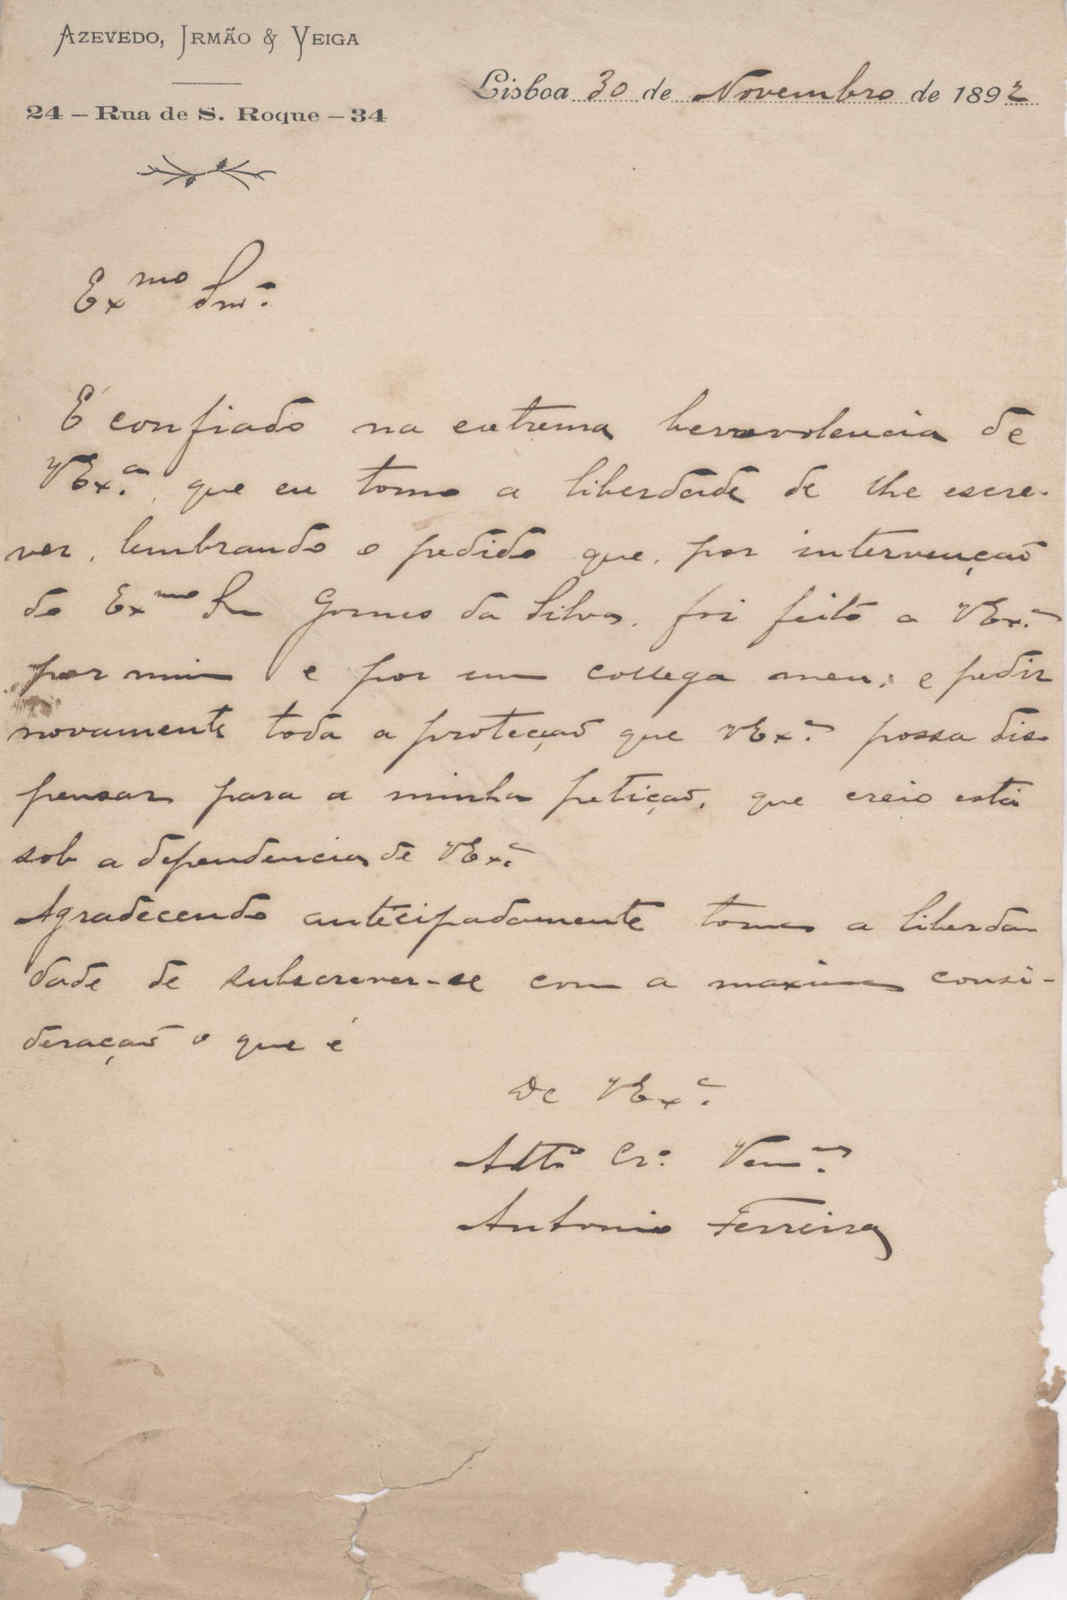 Azevedo, Irmão & Veiga
24 – Rua de S. Roque – 34
Lisboa 30 de Novembro de 1892
Exmo Snr.
É confiado na extrema benevolencia de
VExa. que eu tomo a liberdade de lhe escre-
ver, lembrando o pedido que, por intervenção
do Exmo Sr Gomes da Silva, foi feito a VExa.
por mim e por um collega meu; e pedir
novamente toda a protecção que VExa. possa dis
pensar para a minha petição, que creio está
sob a dependencia de VExa.
Agradecendo antecipadamente toma a liberda
dade de subscrever-se com a maxima consi-
deração o que é
De VExa.
Atto Cro. Venor.
Antonio Ferreira